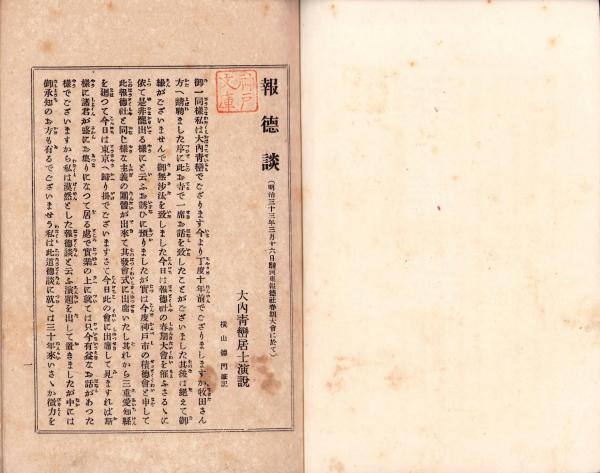 報德談
(明治三十三年三月十六日駿河東報德社春期大會に於て)
大內青巒居士演說
橫山德門筆記
御一同樣私は大內青巒でござります今より丁度十年前でござりましますか牧田さん
方へ請聘ました序に此お寺で一席お話を致したことがございました其後は絕えて御
緣がございませんで御無沙汰を致しました今日は報德社の春期大會を催ふさるゝに
依て是非罷出る樣にと云ふお誘ひに預りましたが實は今度神戶市の積德會と申して
此報德社と同じ樣な主義の團體が出來て其發會式に出席いたし其れから三重愛知縣
を廻つて今日は東京へ歸り掛でございますさて今日此の會に出席して見ますれば斯
樣に諸君が盛にお集りになつて居る處で實業の上に就ては只今有益なお話があつた
樣でございますから私は漠然とした報德談と云ふ演題を出して置きましたが中には
御承知のお方も有るでございませう私は此道德談に就ては三十年來いさゝか微力を
一
神戶
文庫